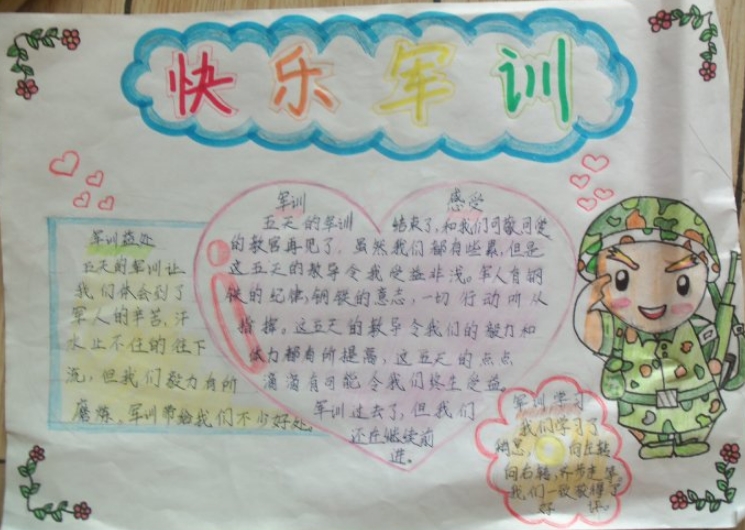 快乐军训
军训益处
五天的军训让
我们体会到了
军人的辛苦,汗
水止不住的往下
流,但我们毅力有所
磨炼。军训带给我们不少好处。
军训 感受
五天的军训 结束了,和我们可敬可爱
的教官再见了。虽然我们都有些累,但是
这五天的教导令我受益非浅。军人有钢
铁的纪律,钢铁的意志,一切行动听从
指挥。这五天的教导令我们的毅力和
体力都有所提高,这五天的点点
滴滴有可能令我们终生受益。
军训过去了,但我们
还在继续前
进。
军训学习
我们学习了
稍息, 向左转
向右转,齐步走等。
我们一致获得了
好 评。